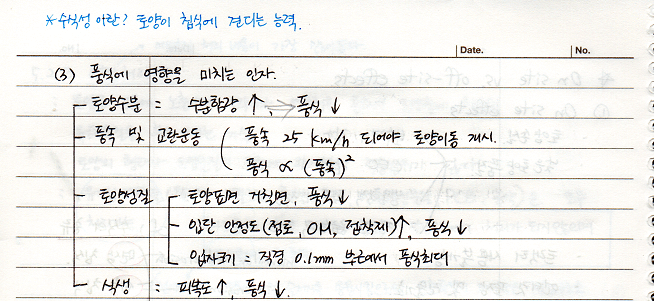 *수식성 이란? 토양이 침식에 견디는 능력.
Date. No.
(3) 풍식에 영향을 미치는 인자.
토양수분 = 수분함량 ↑ → 풍식 ↓
풍속 및 교란운동 ( 풍속 25 km/h 되어야 토양이동 개시.
풍식 ∝ (풍속)²
토양성질 토양표면 거칠면, 풍식 ↓
입단 안정도(점토, OM, 접착제)↑, 풍식 ↓
입자크기 = 직경 0.1mm 부근에서 풍식최대
식생 = 피복도 ↑, 풍식 ↓.